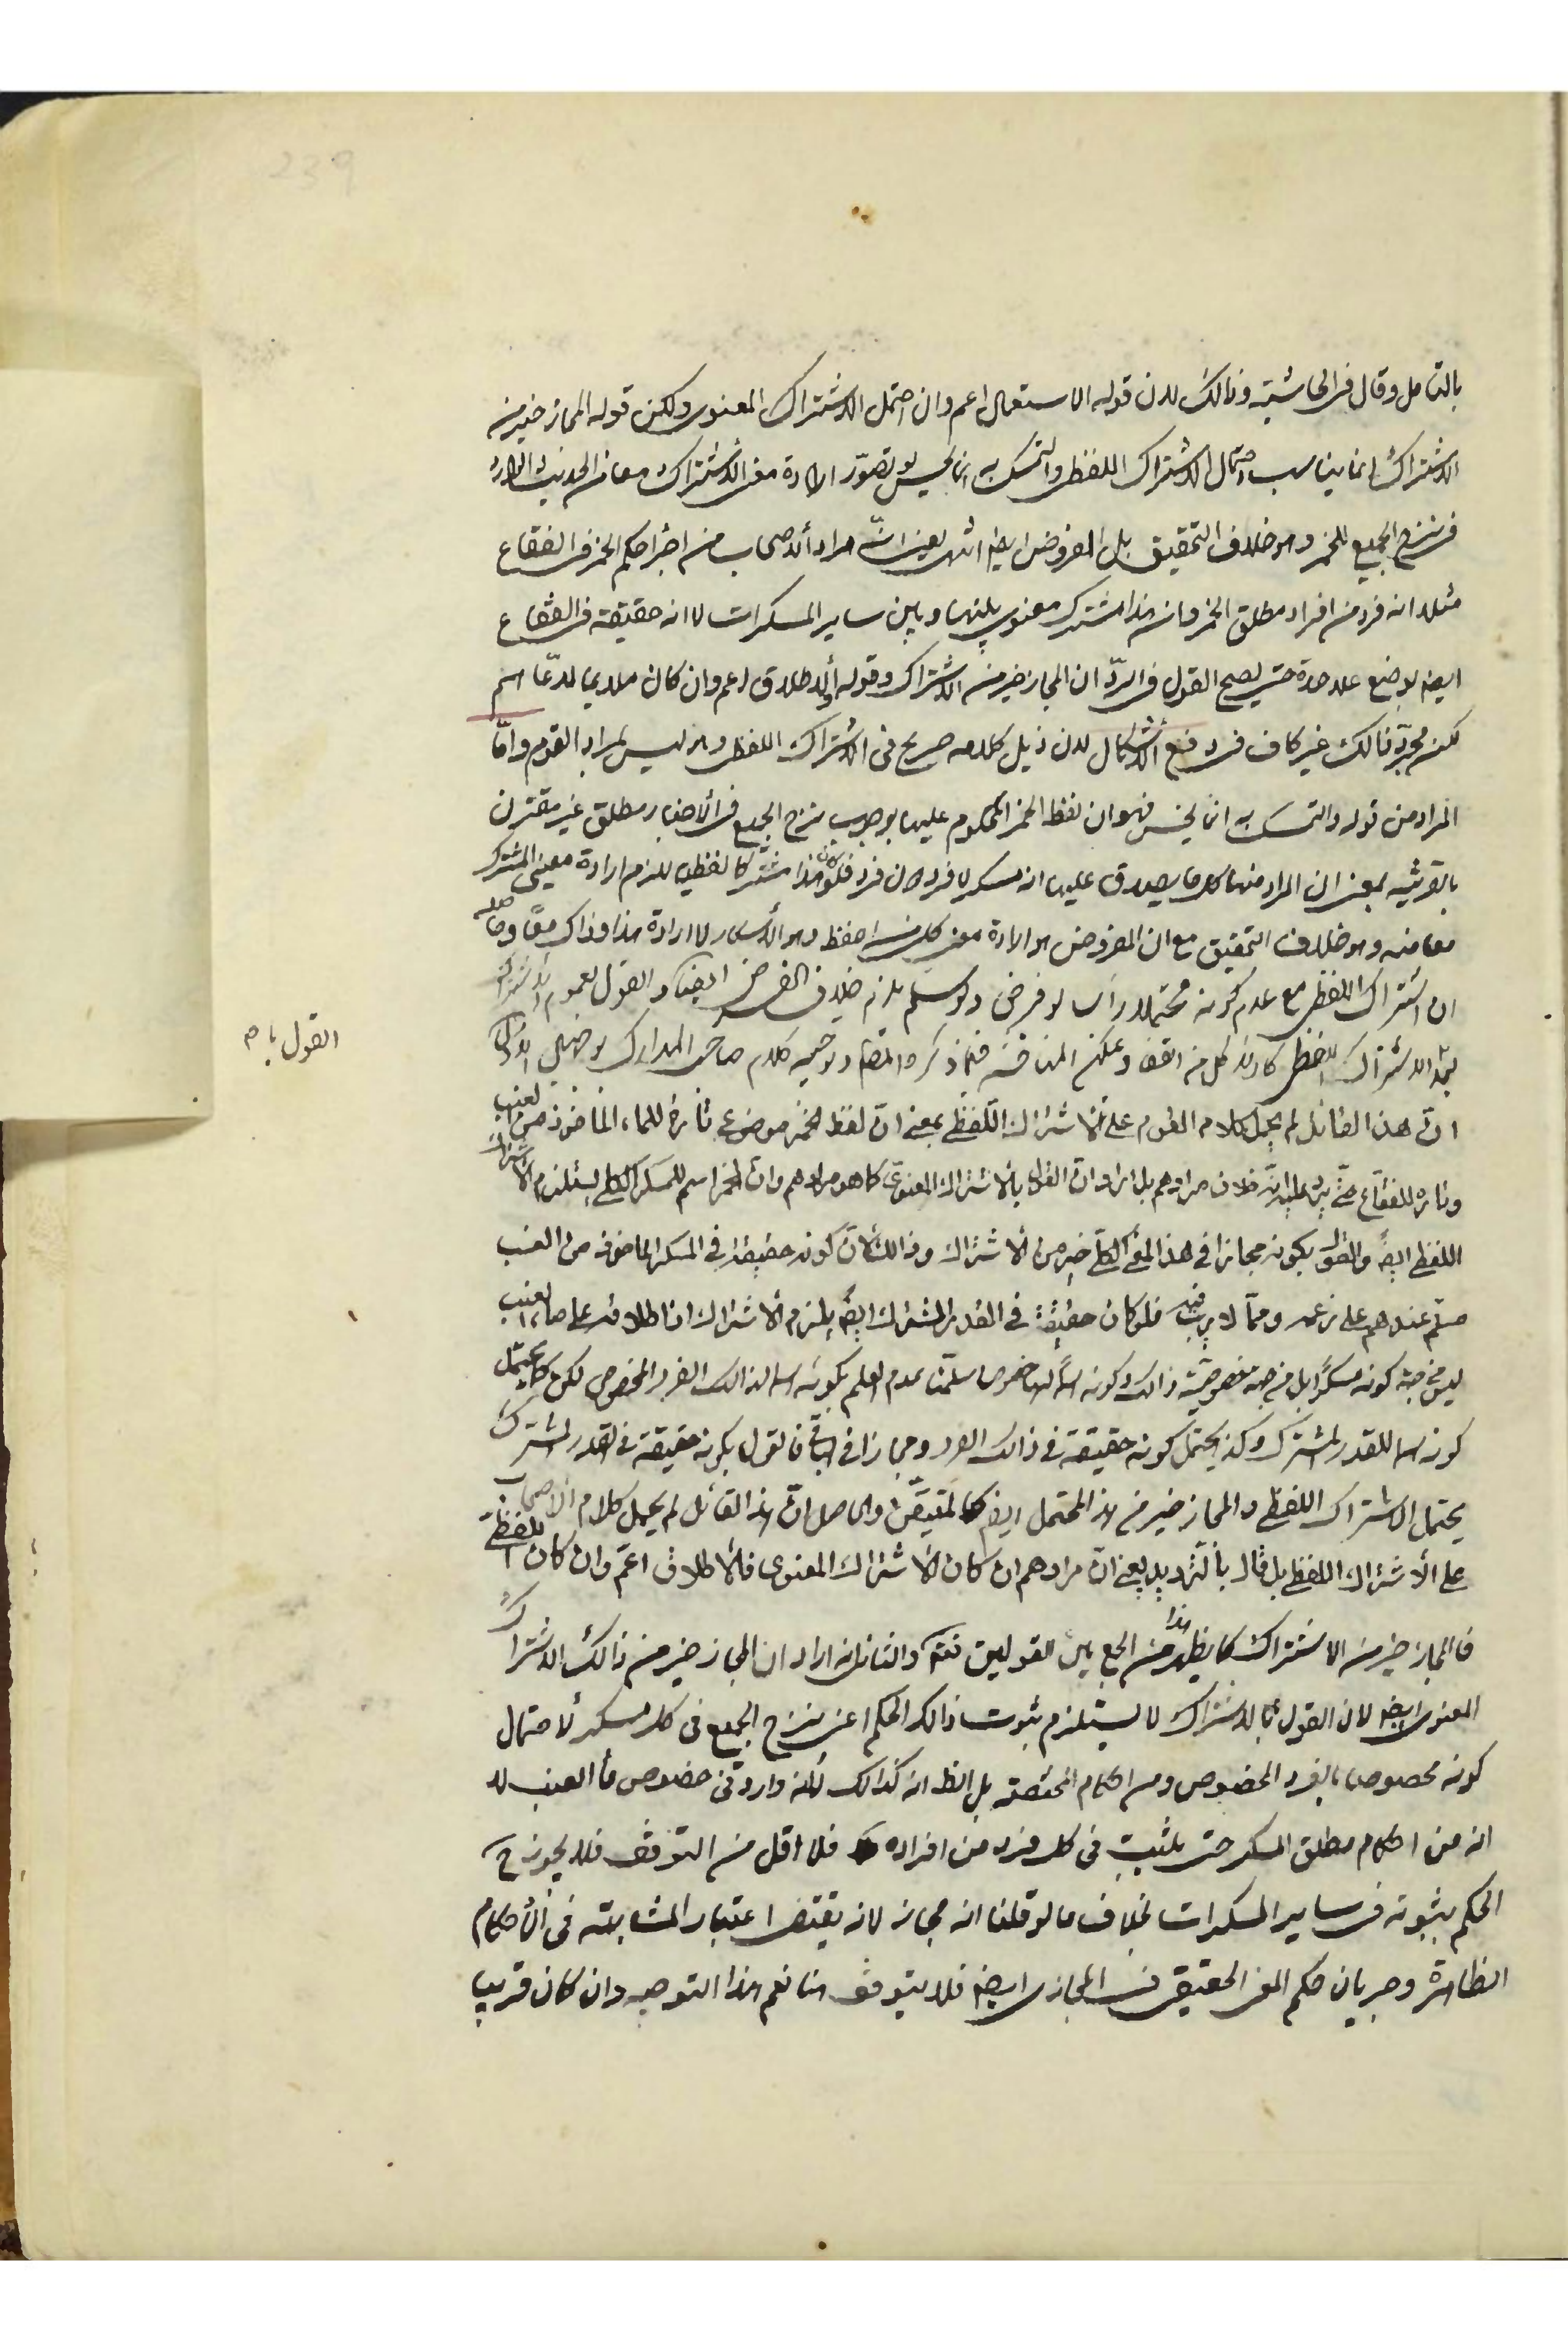 239
بالتامل وقال فى الحاشية وذالك لان قوله الاستعمال اعم وان احتمل الاشتراك المعنوى ولكن قوله المجاز خير من
الاشتراك انما يناسب احتمال الاشتراك اللفظى والتمسك به انما يحسن لو تصور ارادة معنى الاشتراك معا من الحديث الوارد
فى نزح الجميع للخمر وهو خلاف التحقيق بل المفروض ايضا انتهى يعنى ان مراد الاصحاب من اجراء حكم الخمر فى الفقاع
مثلا انه فرد من افراد مطلق الخمر وانه هذا مشترك معنوى بينها وبين ساير المسكرات لا انه حقيقة فى الفقاع
ايضا بوضع علاحدة حتى يصح القول فى الرد ان المجاز خير من الاشتراك وقوله والاطلاق اعم وان كان ملايما لدعاهم
لكن مجرد ذالك غير كاف فى دفع الاشكال لان ذيل كلامه صريح فى الاشتراك اللفظى وهو ليس بمراد القوم واما
المراد من قوله والتمسك به انما يحسن فهو ان لفظ الخمر المحكوم عليها بوجوب نزح الجميع فى الاخبار مطلق غير مقترن
بالقرينه بمعنى ان المراد منها كلما يصدق عليه انه مسكر لا فرد دون فرد فلو كان هذا مشتركا لفظيا يلزم ارادة معنى المشترك
معا منه وهو خلاف التحقيق مع ان المفروض هو ارادة معنى كل من احفظ وهو الأسكار لا ارادة هذا وذاك معا وحاصله
ان اشتراك اللفظى مع عدم كونه محتملا رأسا لو فرض ولو سلم يلزم خلاف الفرض ايضا والقول بعموم الاشتراك
الاشتراك اللفظى كارادة كل من ويمكن المناقشة فيما ذكره وتوجيه كلام صاحب المدارك بوجهين الاول
القول بام
انّ هذا القائل لم يحمل كلام القوم على الاشتراك اللّفظى بمعنى انّ لفظ الخمر موضوع تارة للماء المأخوذ من العنب
وتاره للفقاع حتّى يرد عليه انّه خلاف مرادهم بل اراد انّ القول بالاشتراك المعنوى كما هو مرادهم وانّ الخمر اسم للمسكر الكلى يستلزم الاشتراك
اللفظى ايضً والقول بكونه مجازا فى هذا المعنى الكلّى خير من الاشتراك وذالك لانّ كونه حقيقة فى المسكر الماخوذ من العنب
مسلّم عندهم على زعمه وممّا لا ريب فيه فلو كان حقيقة فى القدر المشترك ايضً يلزم الاشتراك اذ اطلاقه على ماء العنب
ليس من جهة كونه مسكرًا بل من جهة خصوصيّة ذالك وكونه اسمًا لها خصوصا سلّمنا عدم العلم بكونه اسما لذالك الفرد المخصوص لكن كما يحتمل
كونه اسما للقدر المشترك وكذا يحتمل كونه حقيقة فى ذالك الفرد ومجازا فى الباقى فالقول بكونه حقيقة فى القدر المشترك
يحتمل الاشتراك اللفظى والمجاز خير من هذا المحتمل ايضا كالمتيقّن والحاصل انّ هذا القائل لم يحمل كلام الاصحاب
على الاشتراك اللفظى بل قال بالتّرديد يعنى انّ مرادهم ان كان الاشتراك المعنوى فالاطلاق اعمّ وان كان اللفظى
فالمجاز خير من الاشتراك كما يظهر هذا من الجمع بين القولين والثانى انه اراد ان المجاز خير من ذالك الاشتراك
المعنوى ايضا لان القول بالاشتراك لا يستلزم ثبوت ذالك الحكم اعنى نزح الجميع فى كل مسكر لاحتمال
كونه مخصوصا بالفرد المخصوص ومن احكام المختصة بل الظ انه كذالك لانه وارد فى خصوص ماء العنب لا
انه من احكام مطلق المسكر حتى يثبت فى كل فرد من افراده فلا اقل من التوقف فلا يجوز ح
الحكم بثبوته فى ساير المسكرات بخلاف ما لو قلنا انه مجاز لانه يقتضى اعتبار المشابهة فى الاحكام
الظاهرة وجريان حكم المعنى الحقيقى فى المجازى ايضا فلا يتوقف هنا نعم هذا التوجيه وان كان قريبا